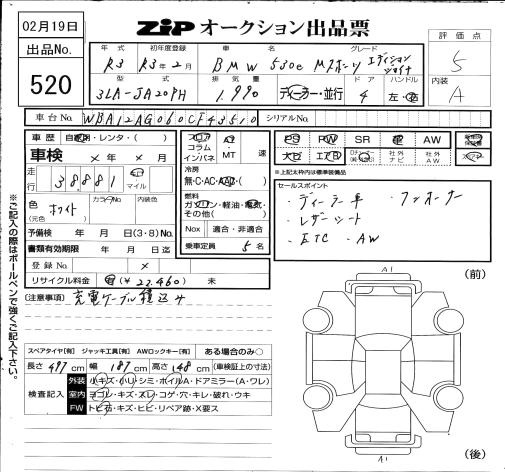 02月19日
ZiP オークション出品票
出品No.
520
評価点
5
内装
A
年式 初年度登録 車名 グレード
R3 R3年2月 BMW 530e Mスポーツ エディション ジョイナ
型式 排気量 ドア ハンドル
3LA-JA20PH 1,990 ディーラー・並行 4 左・右
車台No. WBA12AG060CF43510 シリアルNo.
車歴 自家用・レンタ・( )
車検 × 年 × 月
走行 38,881 km マイル
色 (元色) ホワイト カラーNo 内装色
予備検 年 月 日(3・8)No.
書類有効期限 年 月 日迄
登録No. ×
リサイクル料金 有(¥22,460) 未
フロア コラム インパネ
AT・MT 速
冷房
無・C・AC・AAC・( )
燃料
ガソリン・軽油・電気・その他( )
Nox 適合・非適合
乗車定員 5名
PS PW SR 革 AW
ナビ エアB 社外ナビ 社外AW
※上記太枠内は標準装備品
セールスポイント
・ディーラー車 ・ワンオーナー
・レザーシート
・ETC ・AW
(注意事項) 充電ケーブル積込み
※ご記入の際はボールペンで強くご記入下さい。
スペアタイヤ[有] ジャッキ工具[有] AWロックキー[有] ある場合のみ○
長さ 497cm 幅 187cm 高さ 148cm (車検証上の寸法)
検査記入
外装 小キズ・小U・シミ・ボイルA・ドアミラー(A・ワレ)
室内 ヨゴレ・キズ・スレ・コゲ・穴・キレ・破れ・ウキ
FW トビ石・キズ・ヒビ・リペア跡・X要ス
(前)
A1
A1
(後)